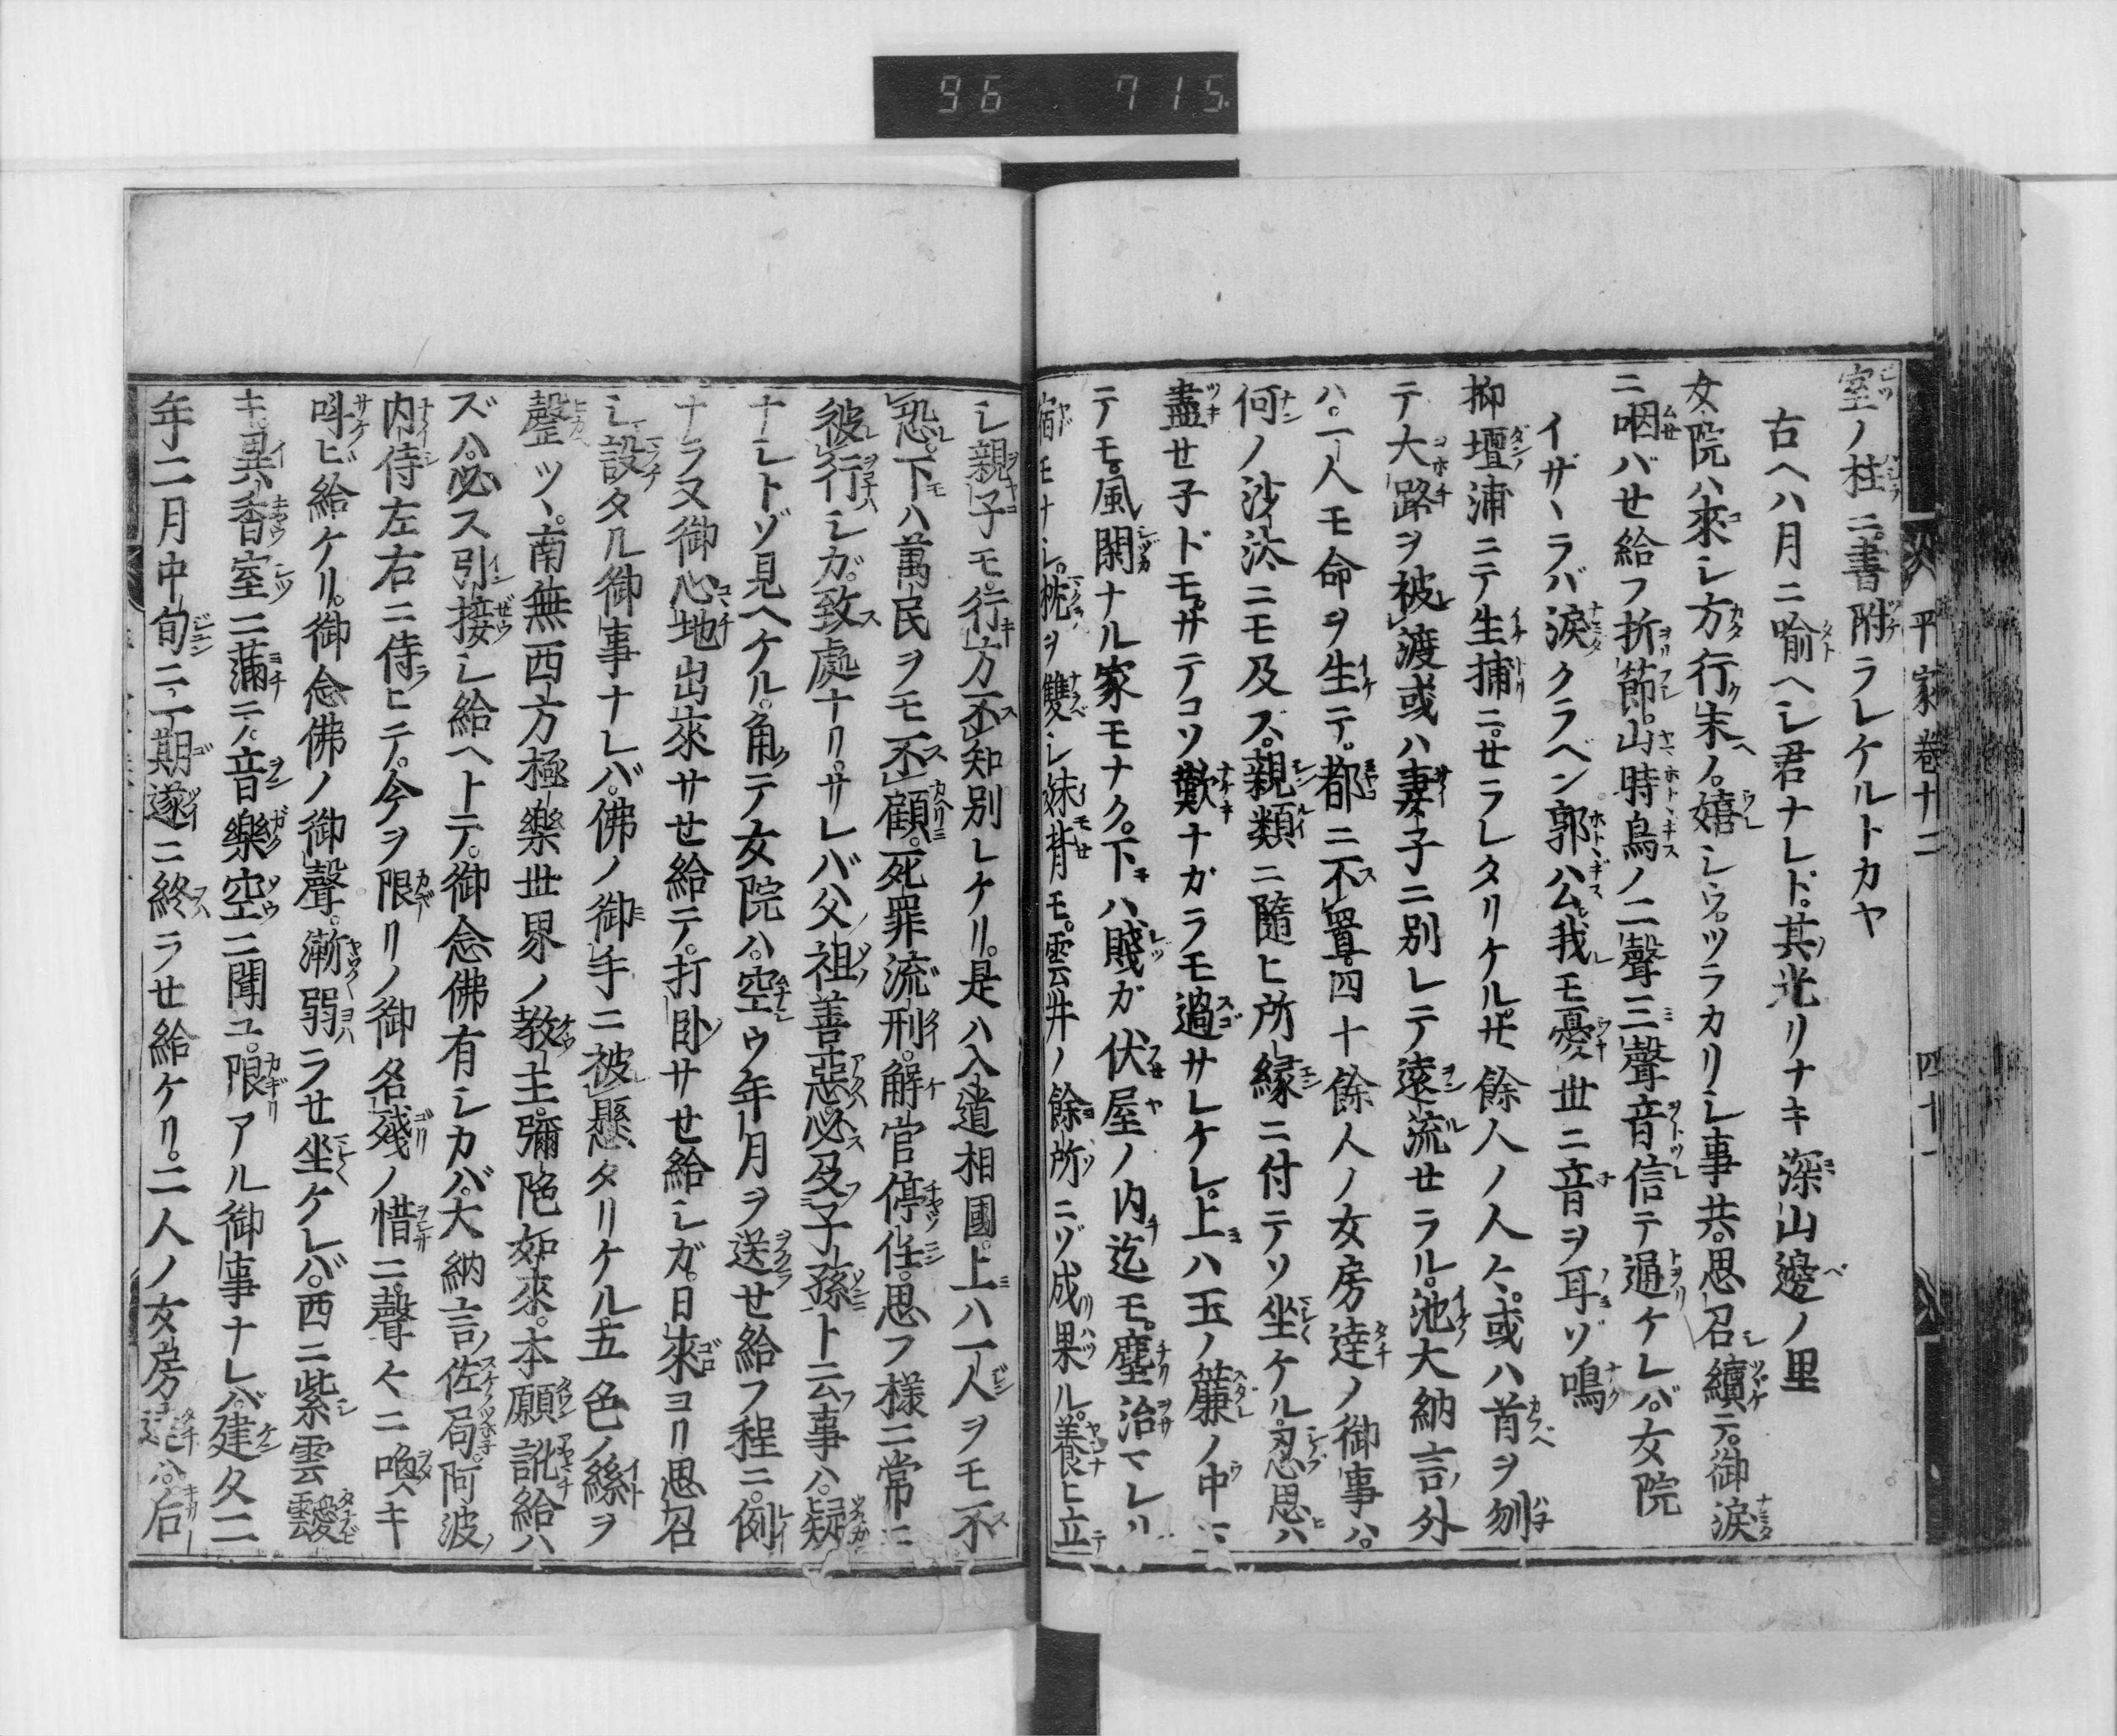 96 715
平家巻十二 四十一
室ノ柱ニ書附ラレケルトカヤ
古ヘハ月ニ喩ヘシ君ナレド其光リナキ深山邊ノ里
女院ハ來シ方行末ノ嬉シウツラカリシ事共思召續テ御涙
ニ咽バせ給フ折節山時鳥ノ二聲三聲音信テ通ケレバ女院
イザヽラバ涙クラベン郭公我モ憂世ニ音ヲ耳ゾ鳴
抑壇浦ニテ生捕ニせラレタリケルサ餘人ノ人々或ハ首ヲ刎
テ大路ヲ被渡或ハ妻子ニ別レテ遠流せラル池大納言ノ外
ハ一人モ命ヲ生テ都ニ不置四十餘人ノ女房達ノ御事ハ
何ノ沙汰ニモ及ス親類ニ隨ヒ所縁ニ付テソ坐ケル忍思ハ
盡せ子ドモサテコソ歎ナガラモ過サレケレ上ハ玉ノ簾ノ中
テモ風閑ナル家モナク下ハ賤ガ伏屋ノ内迄モ塵治マレリ
宿モナシ枕ヲ雙シ妹背モ雲井ノ餘所ニゾ成果ル養ヒ立
シ親子モ行方不知別レケリ是ハ入道相國上ハ一人ヲモ不
恐下ハ萬民ヲモ不顧死罪流刑解官停任思フ様ニ常ニ
被行シガ致處ナリサレバ父祖ノ善惡必及子孫ト云事ハ疑
ナシトゾ見ヘケル角テ女院ハ空ウ年月ヲ送せ給フ程ニ例
ナラヌ御心地出來サせ給テ打臥サせ給シガ日來ヨリ思召
シ設タル御事ナレバ佛ノ御手ニ被懸タリケル五色ノ絲ヲ
磬ツヽ南無西方極樂世界ノ教主彌陀如來本願訛給ハ
ズハ必ス引接シ給ヘトテ御念佛有シカバ大納言ノ佐局阿波ノ
内侍左右ニ侍ヒテ今ヲ限リノ御名殘ノ惜サニ聲々ニ喚キ
叫ビ給ケリ御念佛ノ御聲漸弱ラせ坐ケレバ西ニ紫雲靉
キ異香室ニ滿テ音樂空ニ聞ユ限アル御事ナレバ建久二
年二月中旬ニ一期遂ニ終ラせ給ケリ二人ノ女房達ハ后